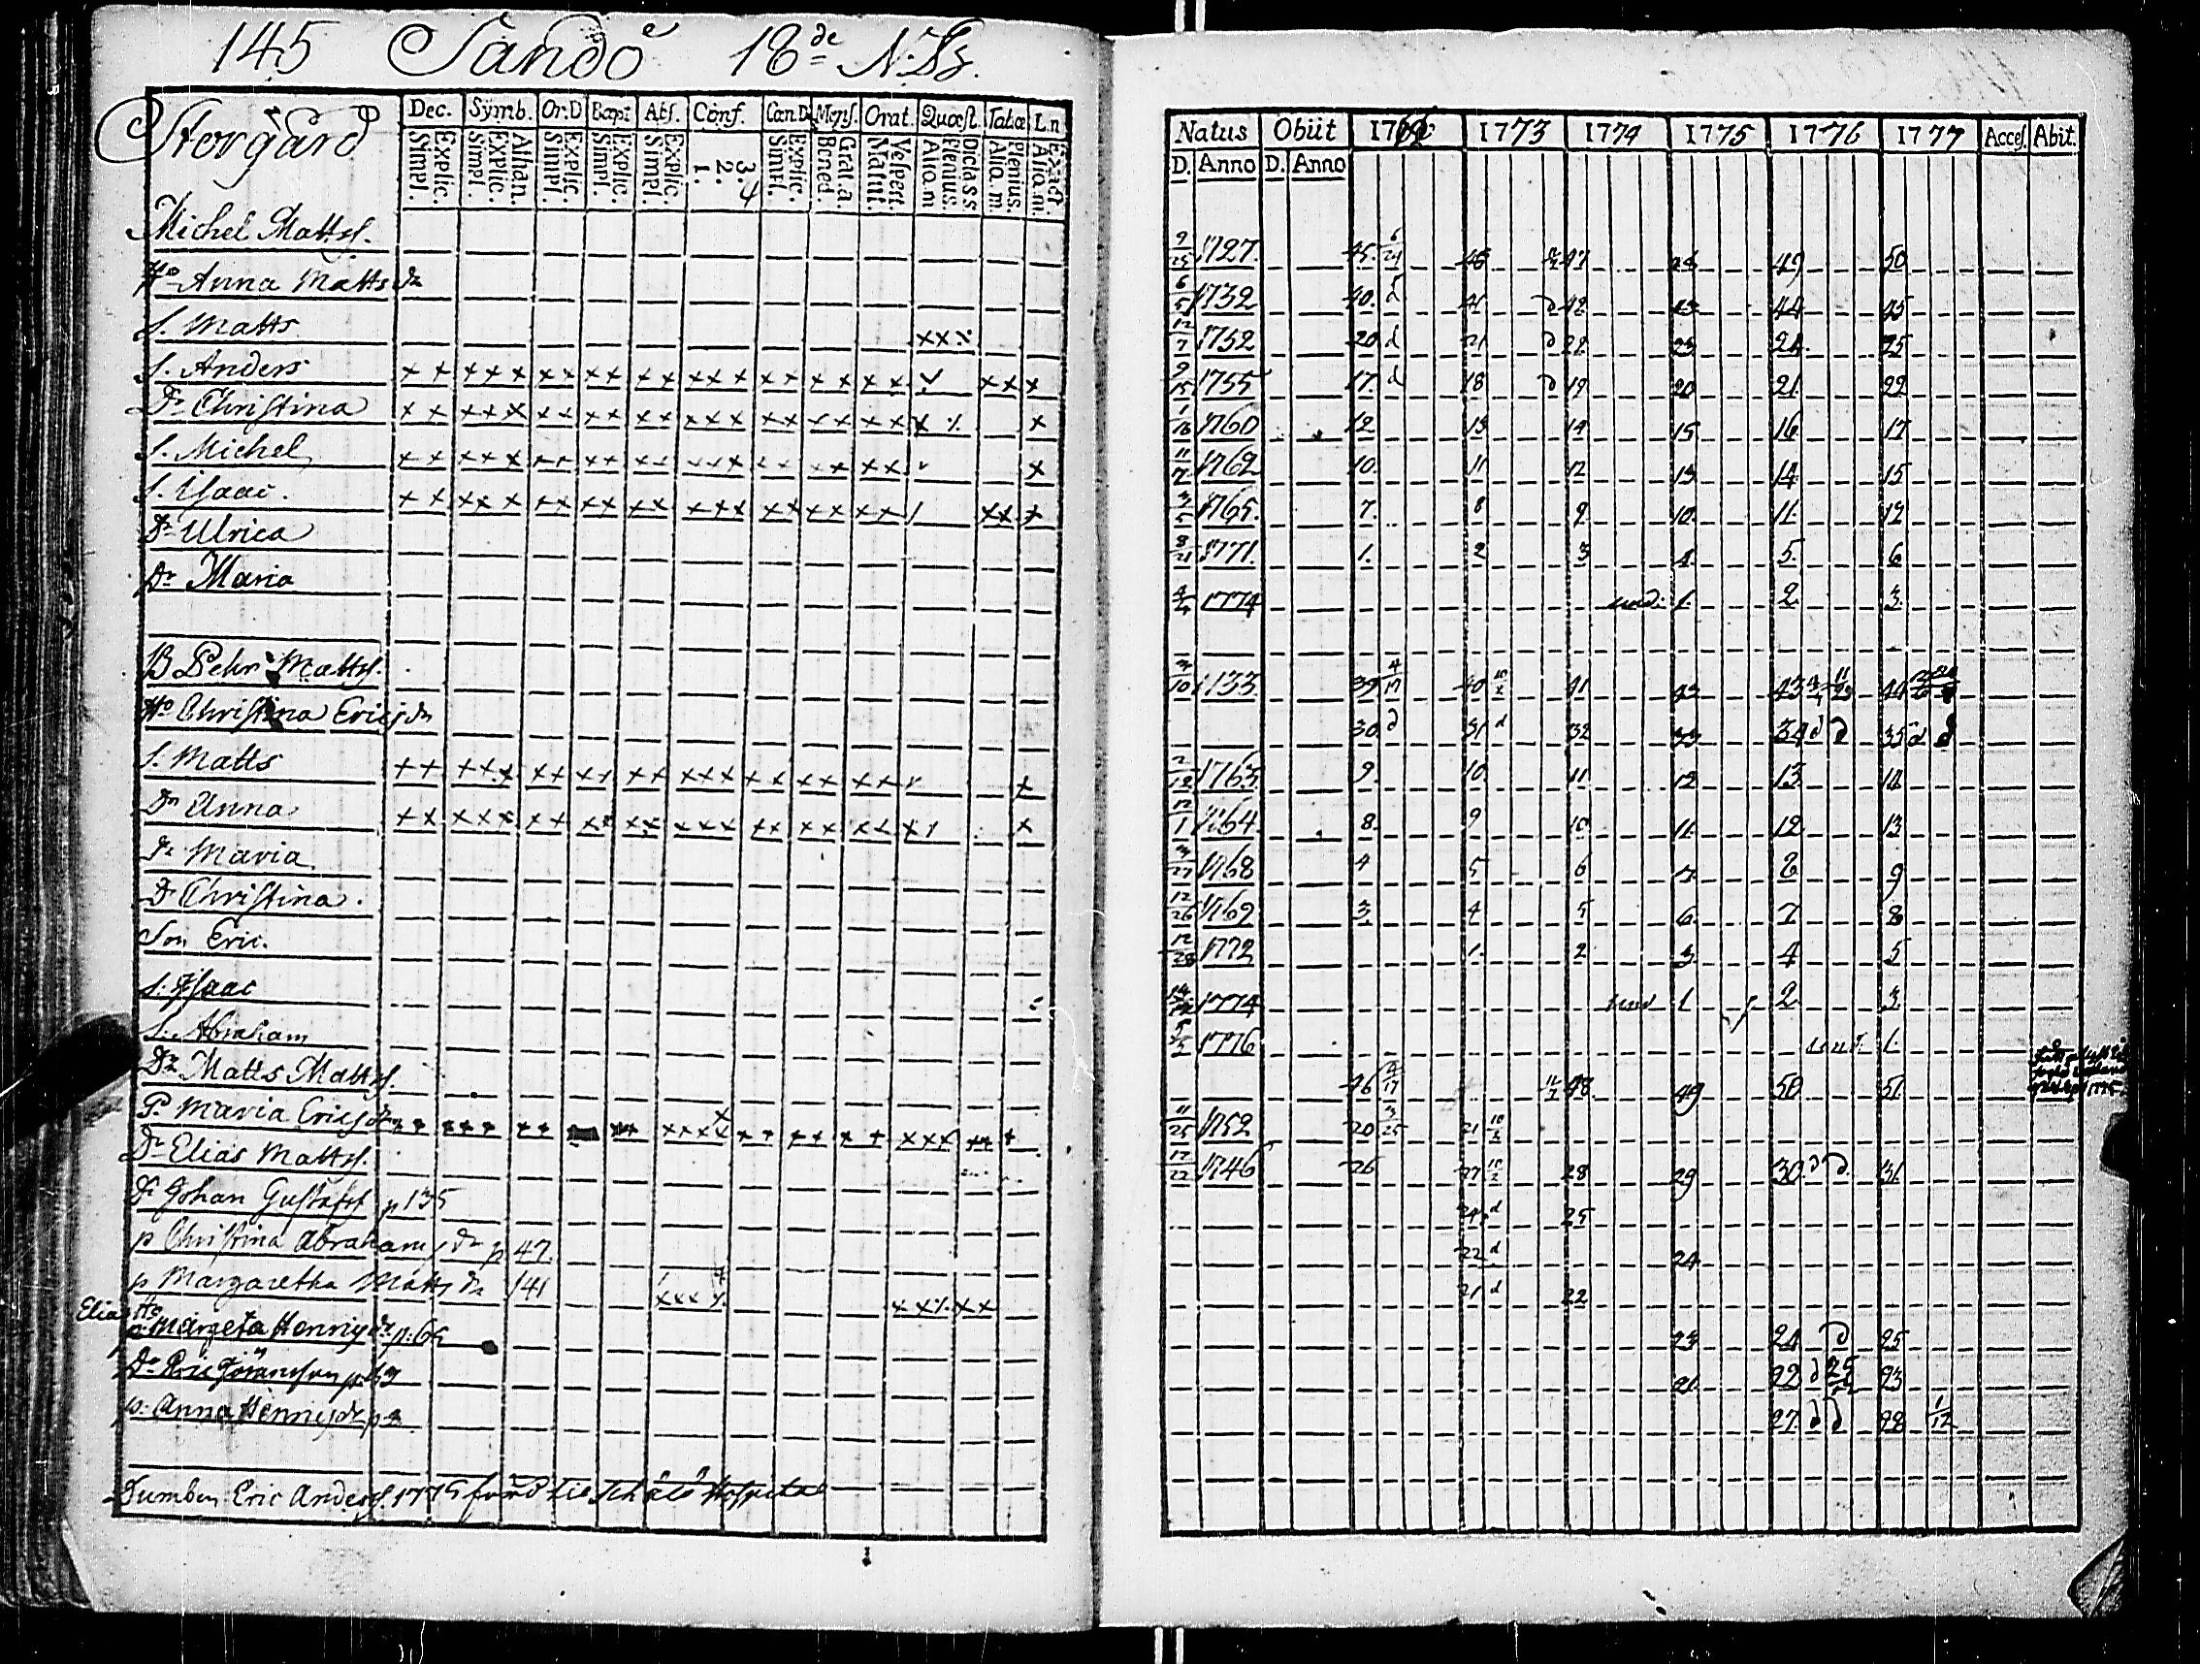 145 Sandö 18de N:
Storgård
Dec. Symb. Or.D Bapt Abs. Conf. Can.D Mens. Orat. Quæst. Tabæ Ln
Explic. Simpl. Athan. Explic. Simpl. Explic. Simpl. Explic. Simpl. Explic. Simpl. 3. 4 2. 1. Explic. Simpl. Grat. a Bened. Vespert. Matut. Dicta s s. Plenius. Aliq. m Plenius. Aliq. m Exact Aliq. m.
Natus Obiit 1773 1774 1775 1776 1777 Acces. Abit.
D. Anno D. Anno
Michel Matts. 9/25 1727. 45. 6/24 46 47 49 50
Ho Anna Mattsdr 6/5 1732 40. d 41 d 42 43 44 45
S. Matts 12/7 1752 20 d 21 d 22 23 24 25
S. Anders 9/15 1755 17. d 18 d 19 20 21 22
Dr Christina 1/16 1760 12 13 14 15 16 17
S. Michel 11/7 1762 10. 11 12 13 14 15
S. Isaac. 3/5 1765. 7. 8 9 10. 11. 12
Dr Ulrica 8/21 1771. 1. 2 3 4. 5. 6
Dr Maria 1774 und. 1. 2 3.
B Pehr Matts. 3/10 1733 39 4/17 40 10/2 41 42 43 44
Ho Christina Ericsdr 30. d 31 d 32 33 34 d d 35 d d
S. Matts 2/12 1763. 9. 10. 11 12 13 14
Dr Anna 12/1 1764 8. 9 10 11. 12 13
Dr Maria 3/27 1768 4 5 6 7. 8 9
Dr Christina. 12/26 1769 3. 4 5 6. 7 8
Son Eric. 12/28 1772 1. 2 3. 4 5
S. Isaac 1774 und 1 2 3.
S. Abraham 1776 und. 1.
Dr Matts Matts. 46 4/17 48 49 50 51.
P. Maria Ericsdr 11/25 1752 20 3/25 21 10/2
Dr Elias Matts. 12/22 1746 26 27 10/2 28 29 30. d d. 31.
Dr Johan Gustafs p 135 24. d 25
p Christina Abrahamsdr p 47. 22 d 24
p Margaretha Mattsdr 141 21 d 22
Elias Ho
Margeta Henrigdr p: 23 24 d 25
Dr Eric Göransson p 21 22 d 23
p. Anna Henrigdr p 27. d d 28 1/12
Dumben Eric Anders. 1775 förd til Själö Hospital